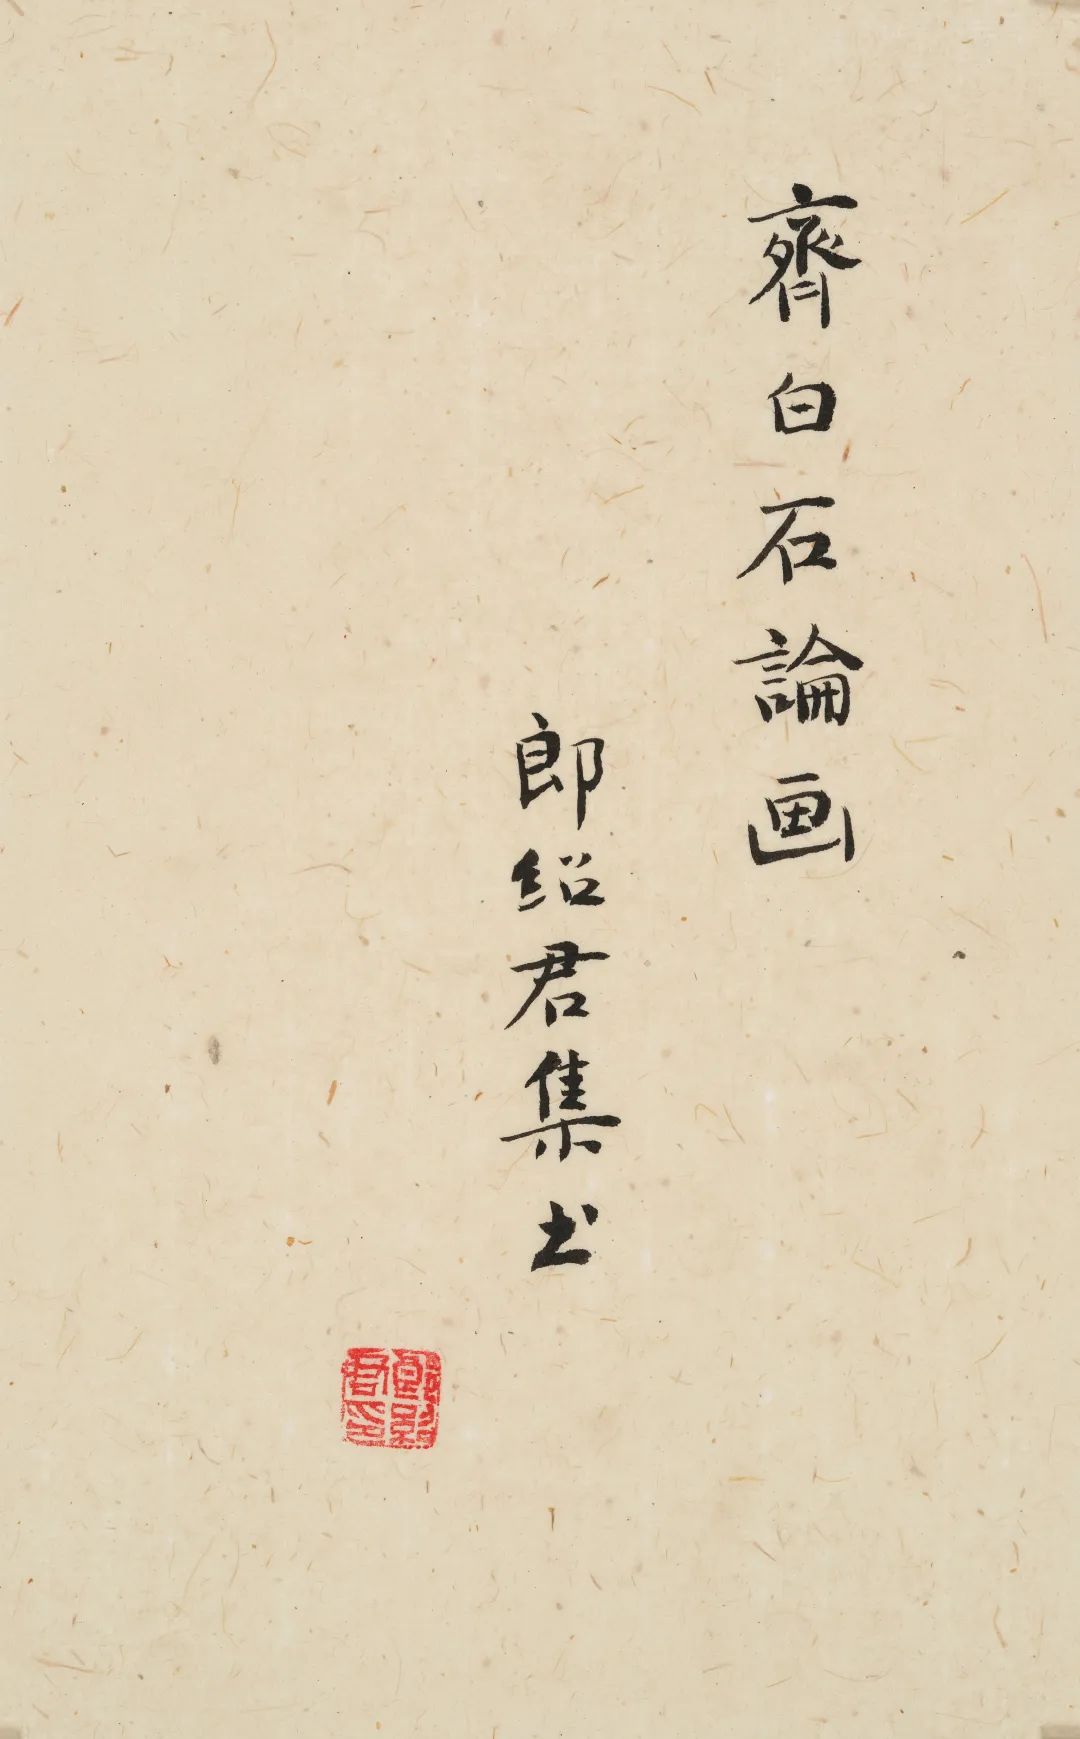 齊白石論画
郎绍君集书
郎绍君印